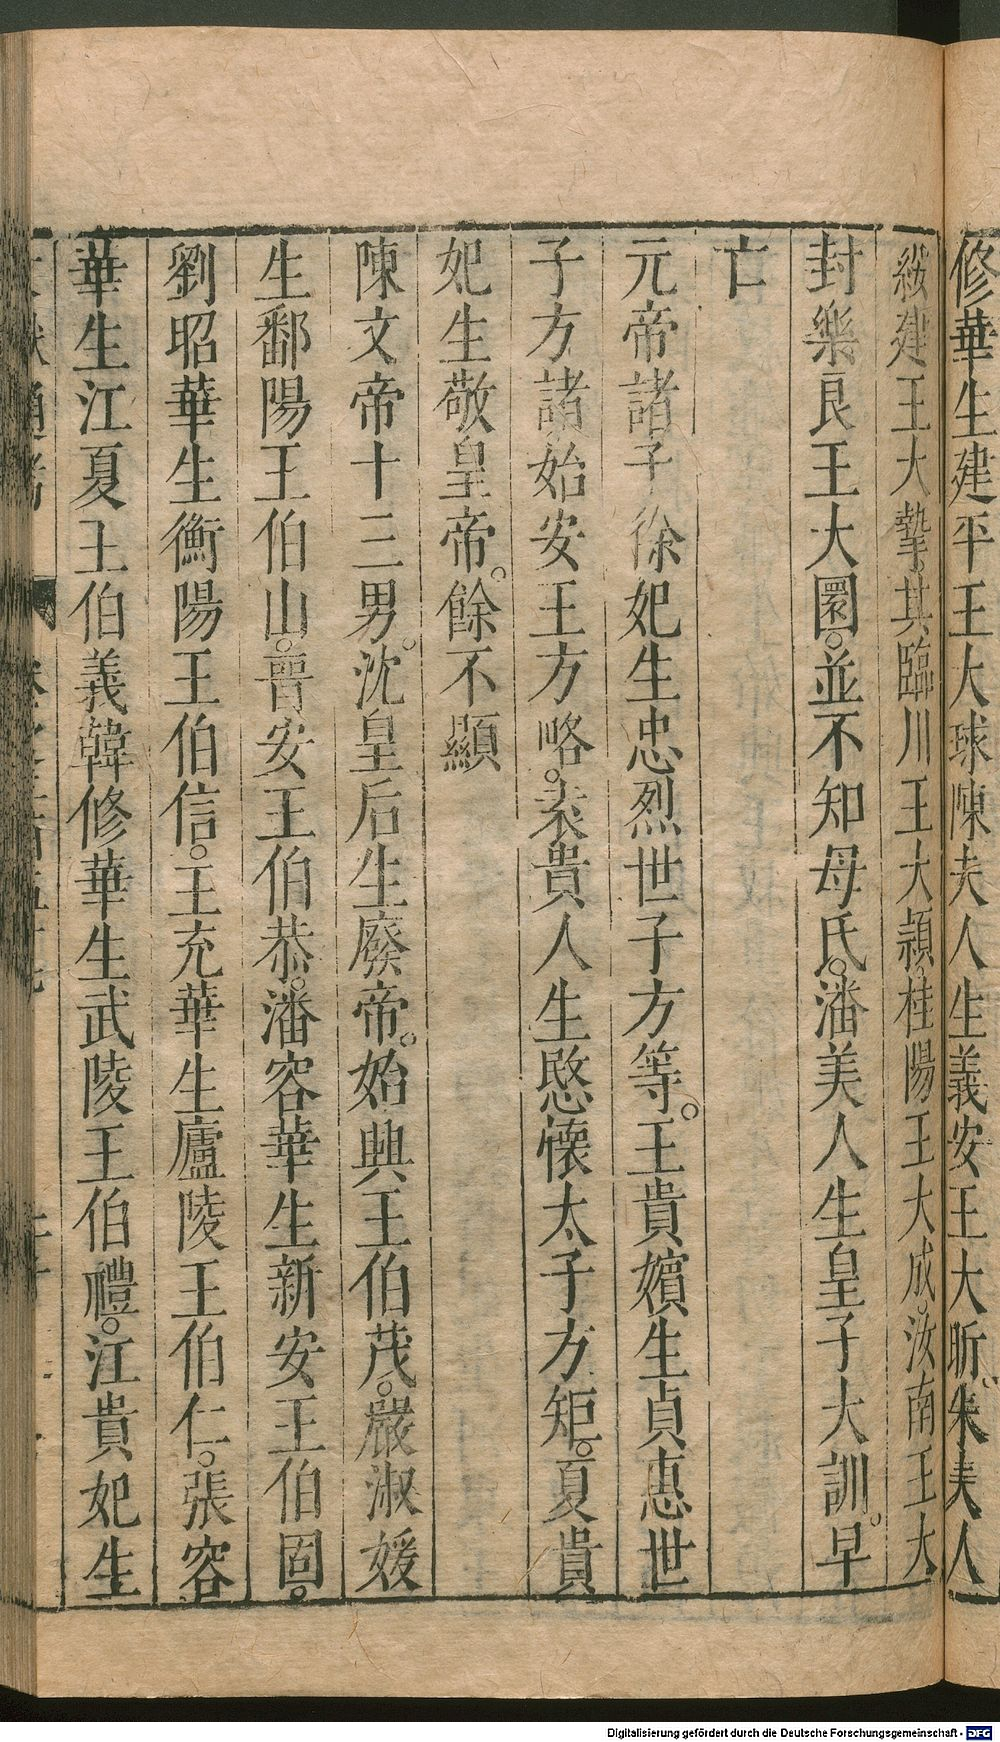 修華生建平王大球陳夫人生義安王大昕。朱美人
綏建王大摯。其臨川王大頴。桂陽王大成。汝南王大
封樂良王大圜。並不知母氏。潘美人生皇子大訓。早
亡
元帝諸子徐妃生忠烈世子方等。王貴嬪生貞惠世
子方諸始安王方略。袁貴人生愍懷太子方矩。夏貴
妃生敬皇帝。餘不顯
陳文帝十三男。沈皇后生廢帝。始興王伯茂。嚴淑媛
生鄱陽王伯山。晉安王伯恭。潘容華生新安王伯固。
劉昭華生衡陽王伯信。王充華生廬陵王伯仁。張容
華生江夏王伯義韓修華生武陵王伯禮。江貴妃生
Digitalisierung gefördert durch die Deutsche Forschungsgemeinschaft - DFG